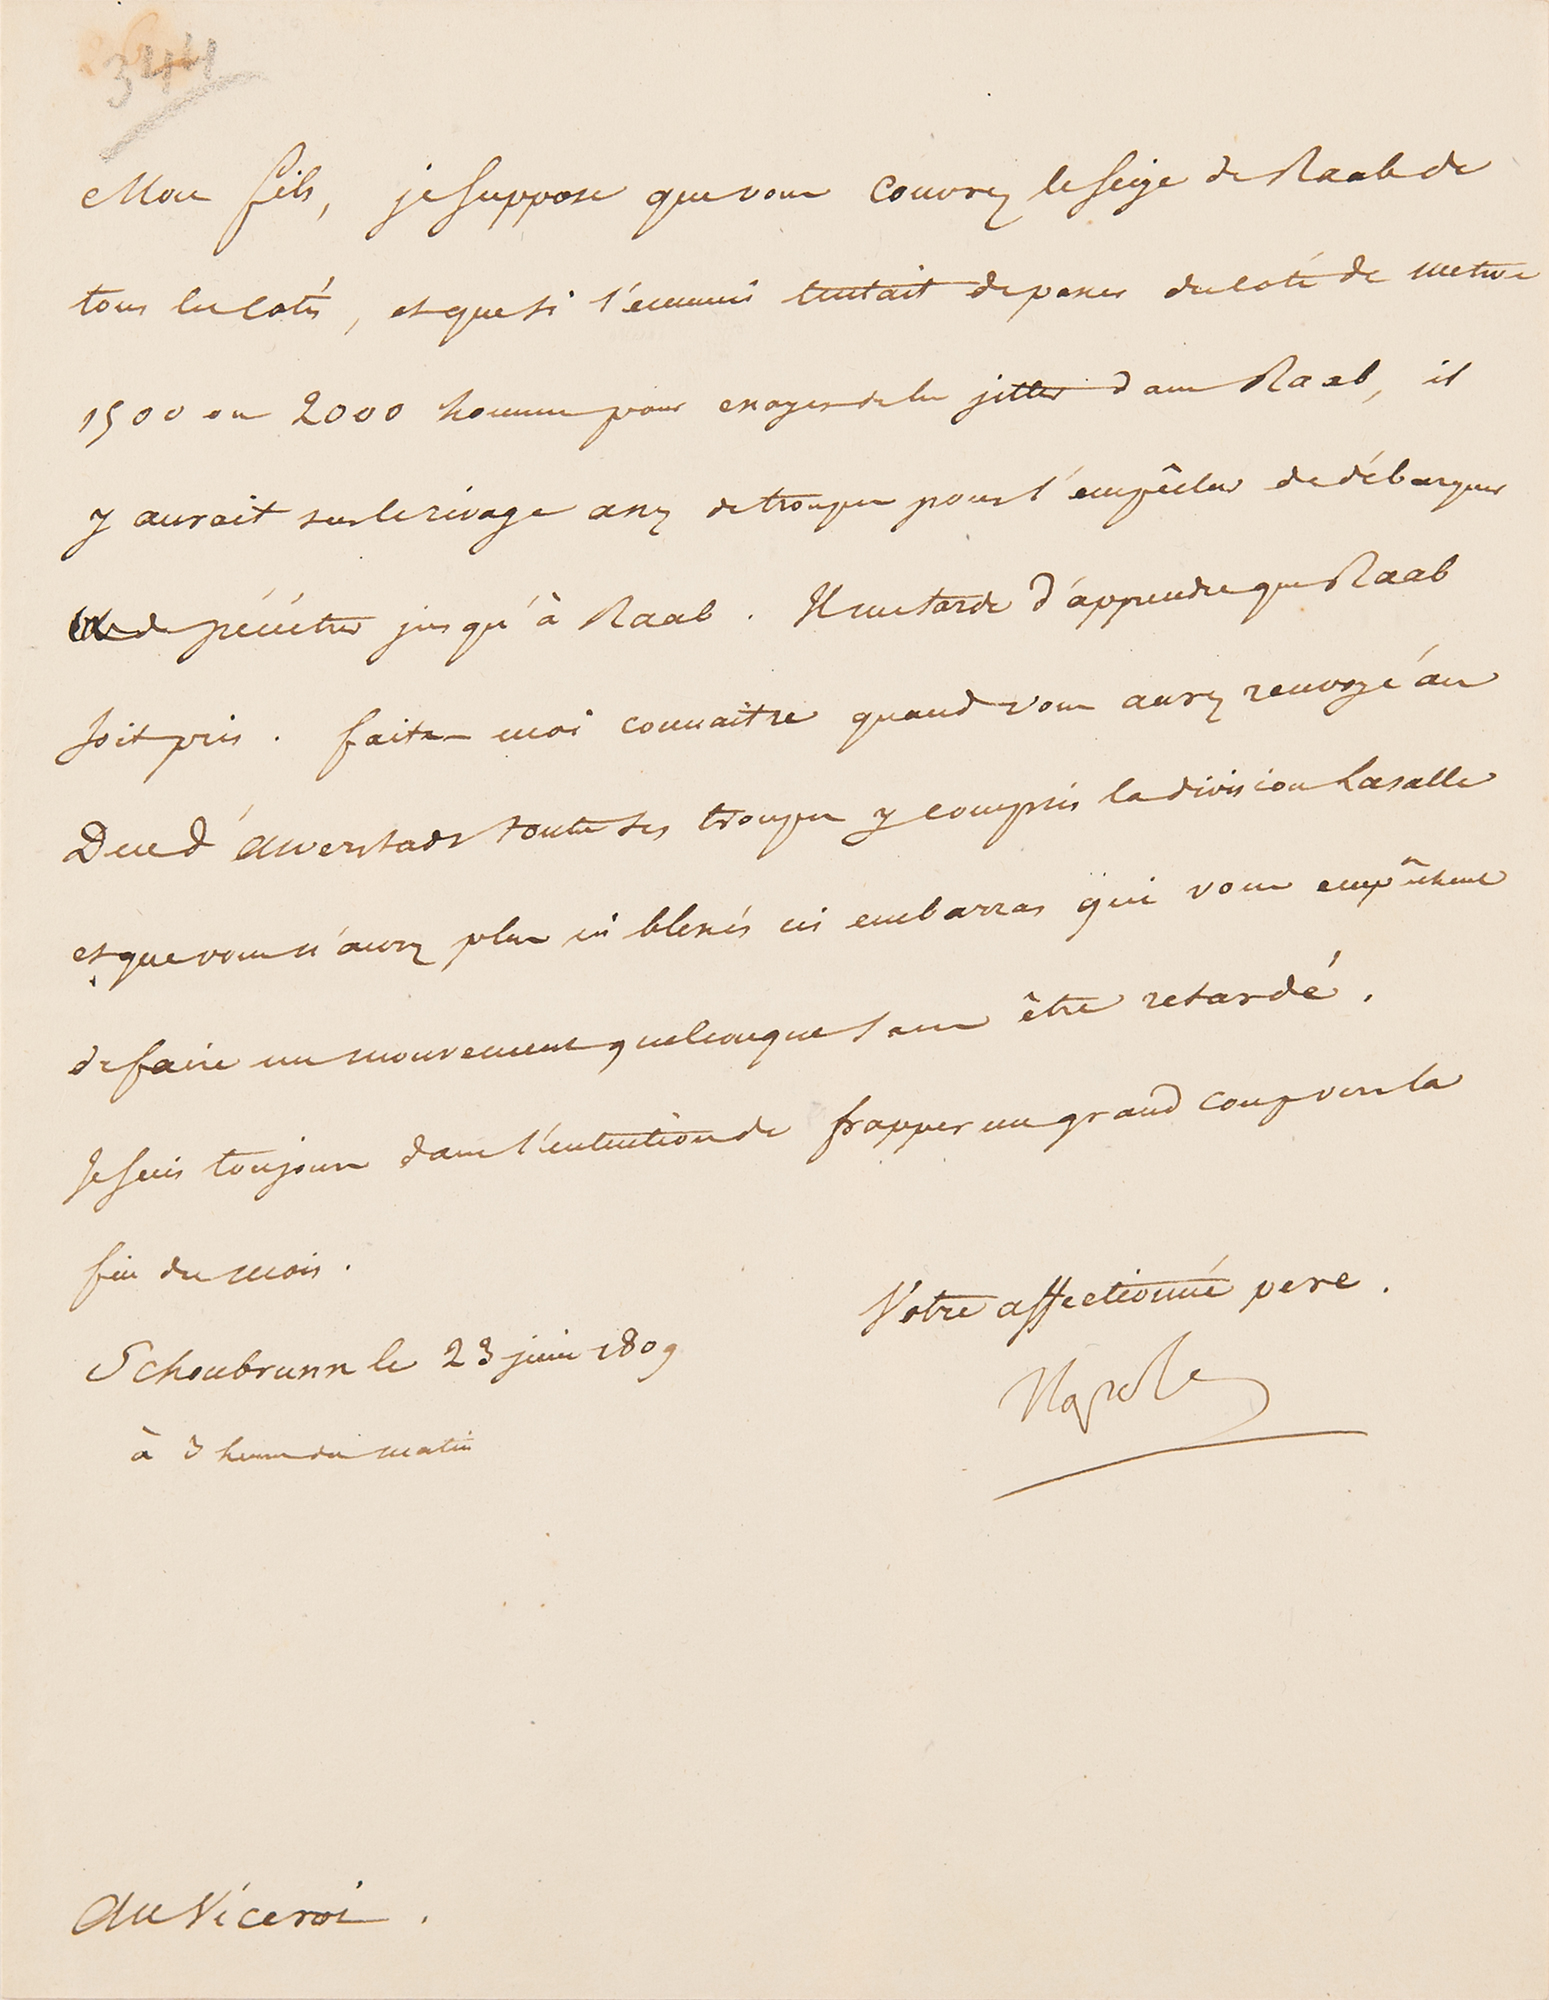 344
Mon fils, je suppose que vous couvrez le seige de Raab de
tous les cotés, et que si l'ennemi tentait de passer du coté de mettre
1500 ou 2000 hommes pour essayer de les jetter dans Raab, il
y aurait sur le rivage assez de troupes pour l'empêcher de débarquer
et de pénétrer jusqu'à Raab. Il me tarde d'apprendre que Raab
soit pris. faites moi connaitre quand vous aurez renvoyé au
Duc d'Auerstadt toutes ses troupes y compris la division Lasalle
et que vous n'aurez plus ni blessés ni embarras qui vous empêchent
de faire un mouvement quelconque sans être retardé.
Je suis toujours dans l'intention de frapper un grand coup vers la
fin du mois.
Votre affectionné pere.
Schonbrunn le 23 juin 1809
Napole
à 3 heures du matin
Au Viceroi.